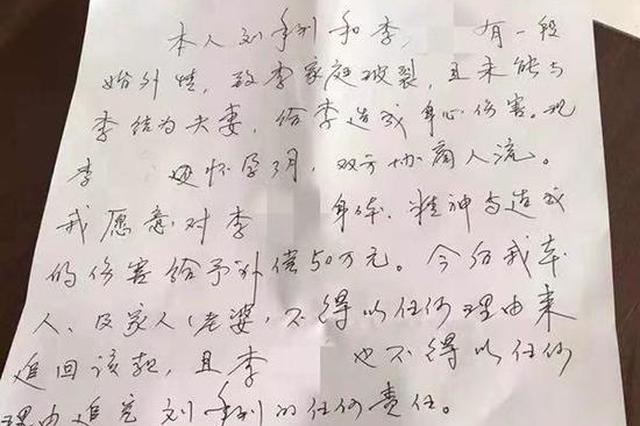 本人刘 和李 有一段
婚外情，致李家庭破裂，且未能与
李结为夫妻，给李造成身心伤害。现
李 已怀孕3月，双方协商人流。
我愿意对李 身体、精神与造成
的伤害给予补偿50万元。今后我本
人、及家人（老婆）不得以任何理由来
追回该款，且李 也不得以任何
理由追究刘 的任何责任。